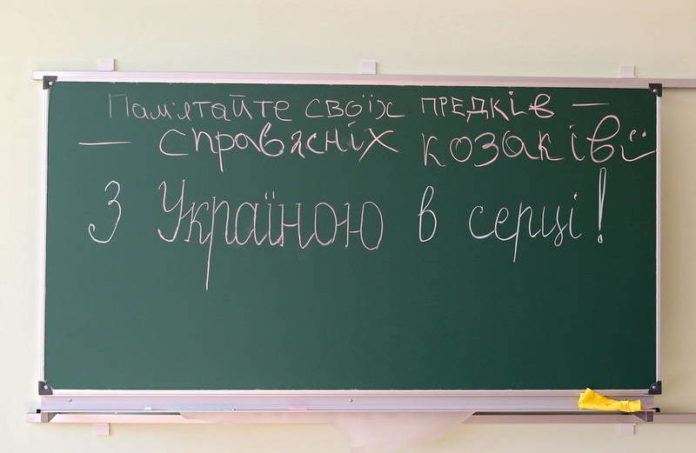 Пам'ятайте своїх предків —
— справжніх козаків
З Україною в серці!